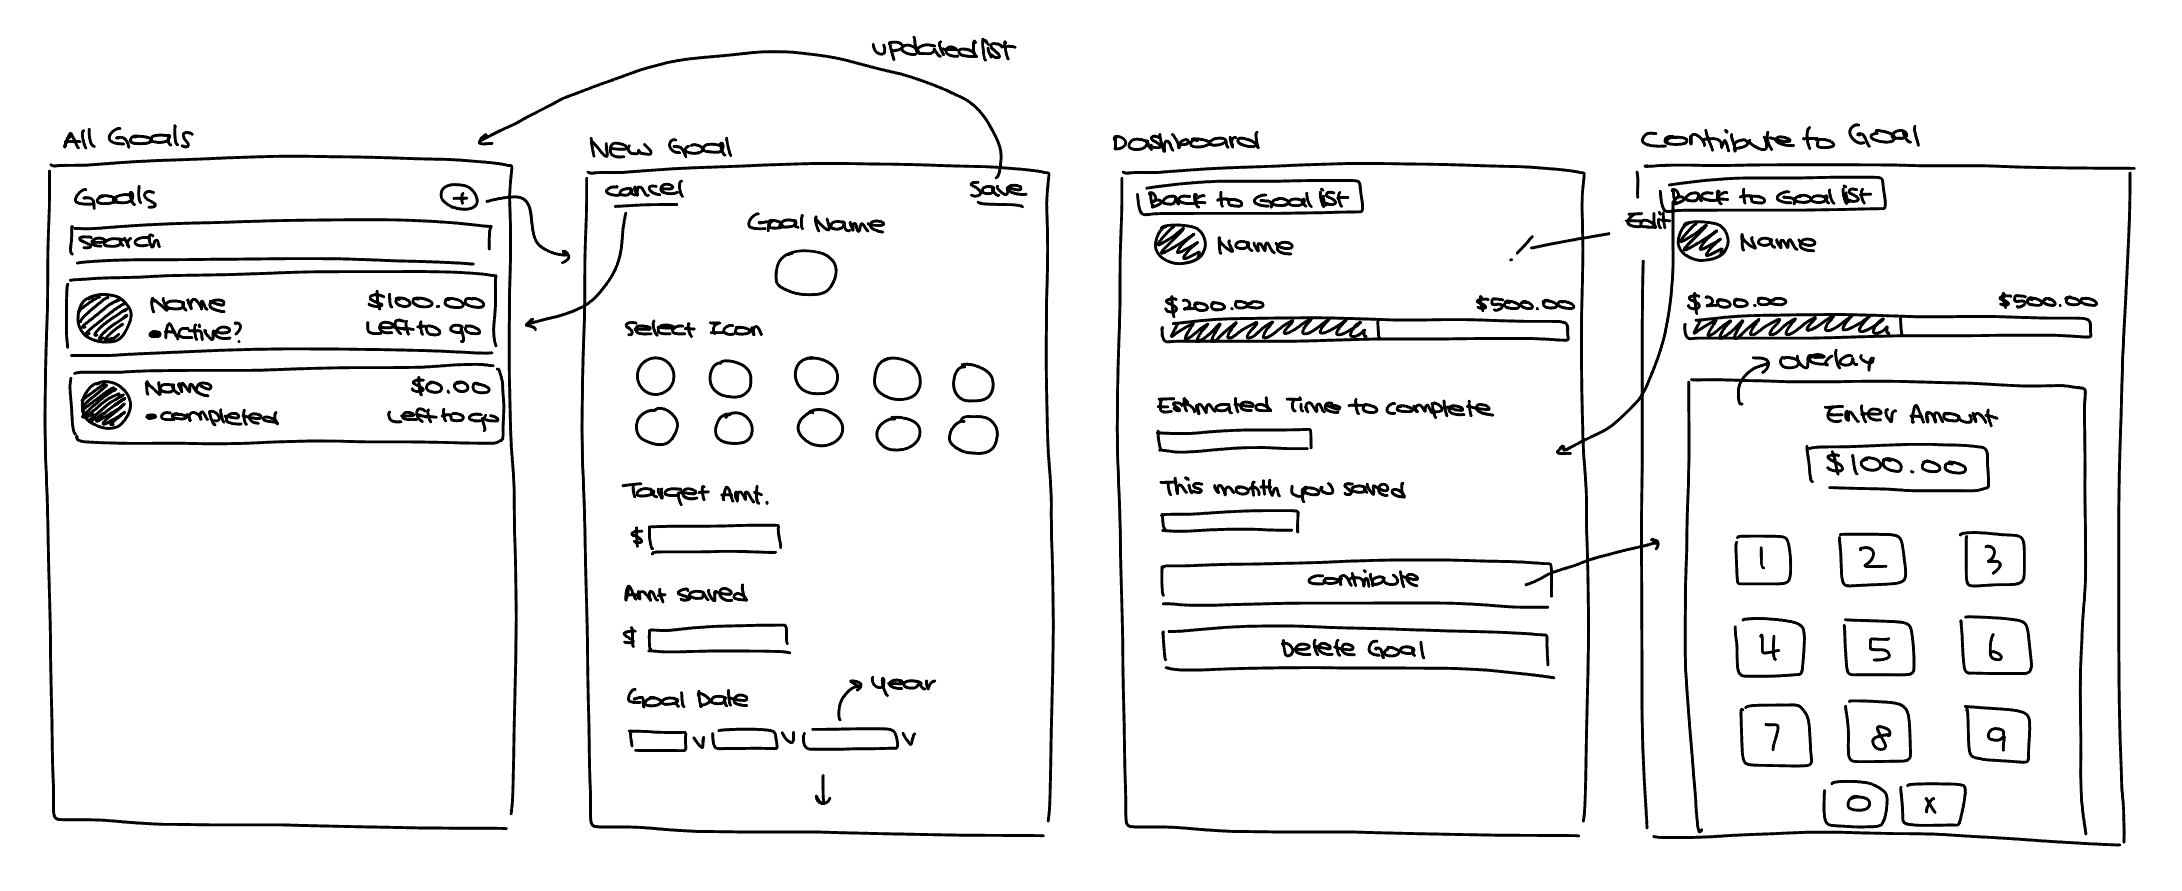 updated list
All Goals
Goals
+
search
Name
$100.00
•Active?
Left to go
Name
$0.00
•completed
Left to go
New Goal
cancel
Save
Goal Name
Select Icon
Target Amt.
$
Amt saved
$
Goal Date
year
v
v
v
Dashboard
Back to Goal list
Name
Edit
$200.00
$500.00
Estimated Time to complete
This month you saved
Contribute
Delete Goal
Contribute to Goal
Back to Goal list
Name
$200.00
$500.00
overlay
Enter Amount
$100.00
1 2 3
4 5 6
7 8 9
0 x